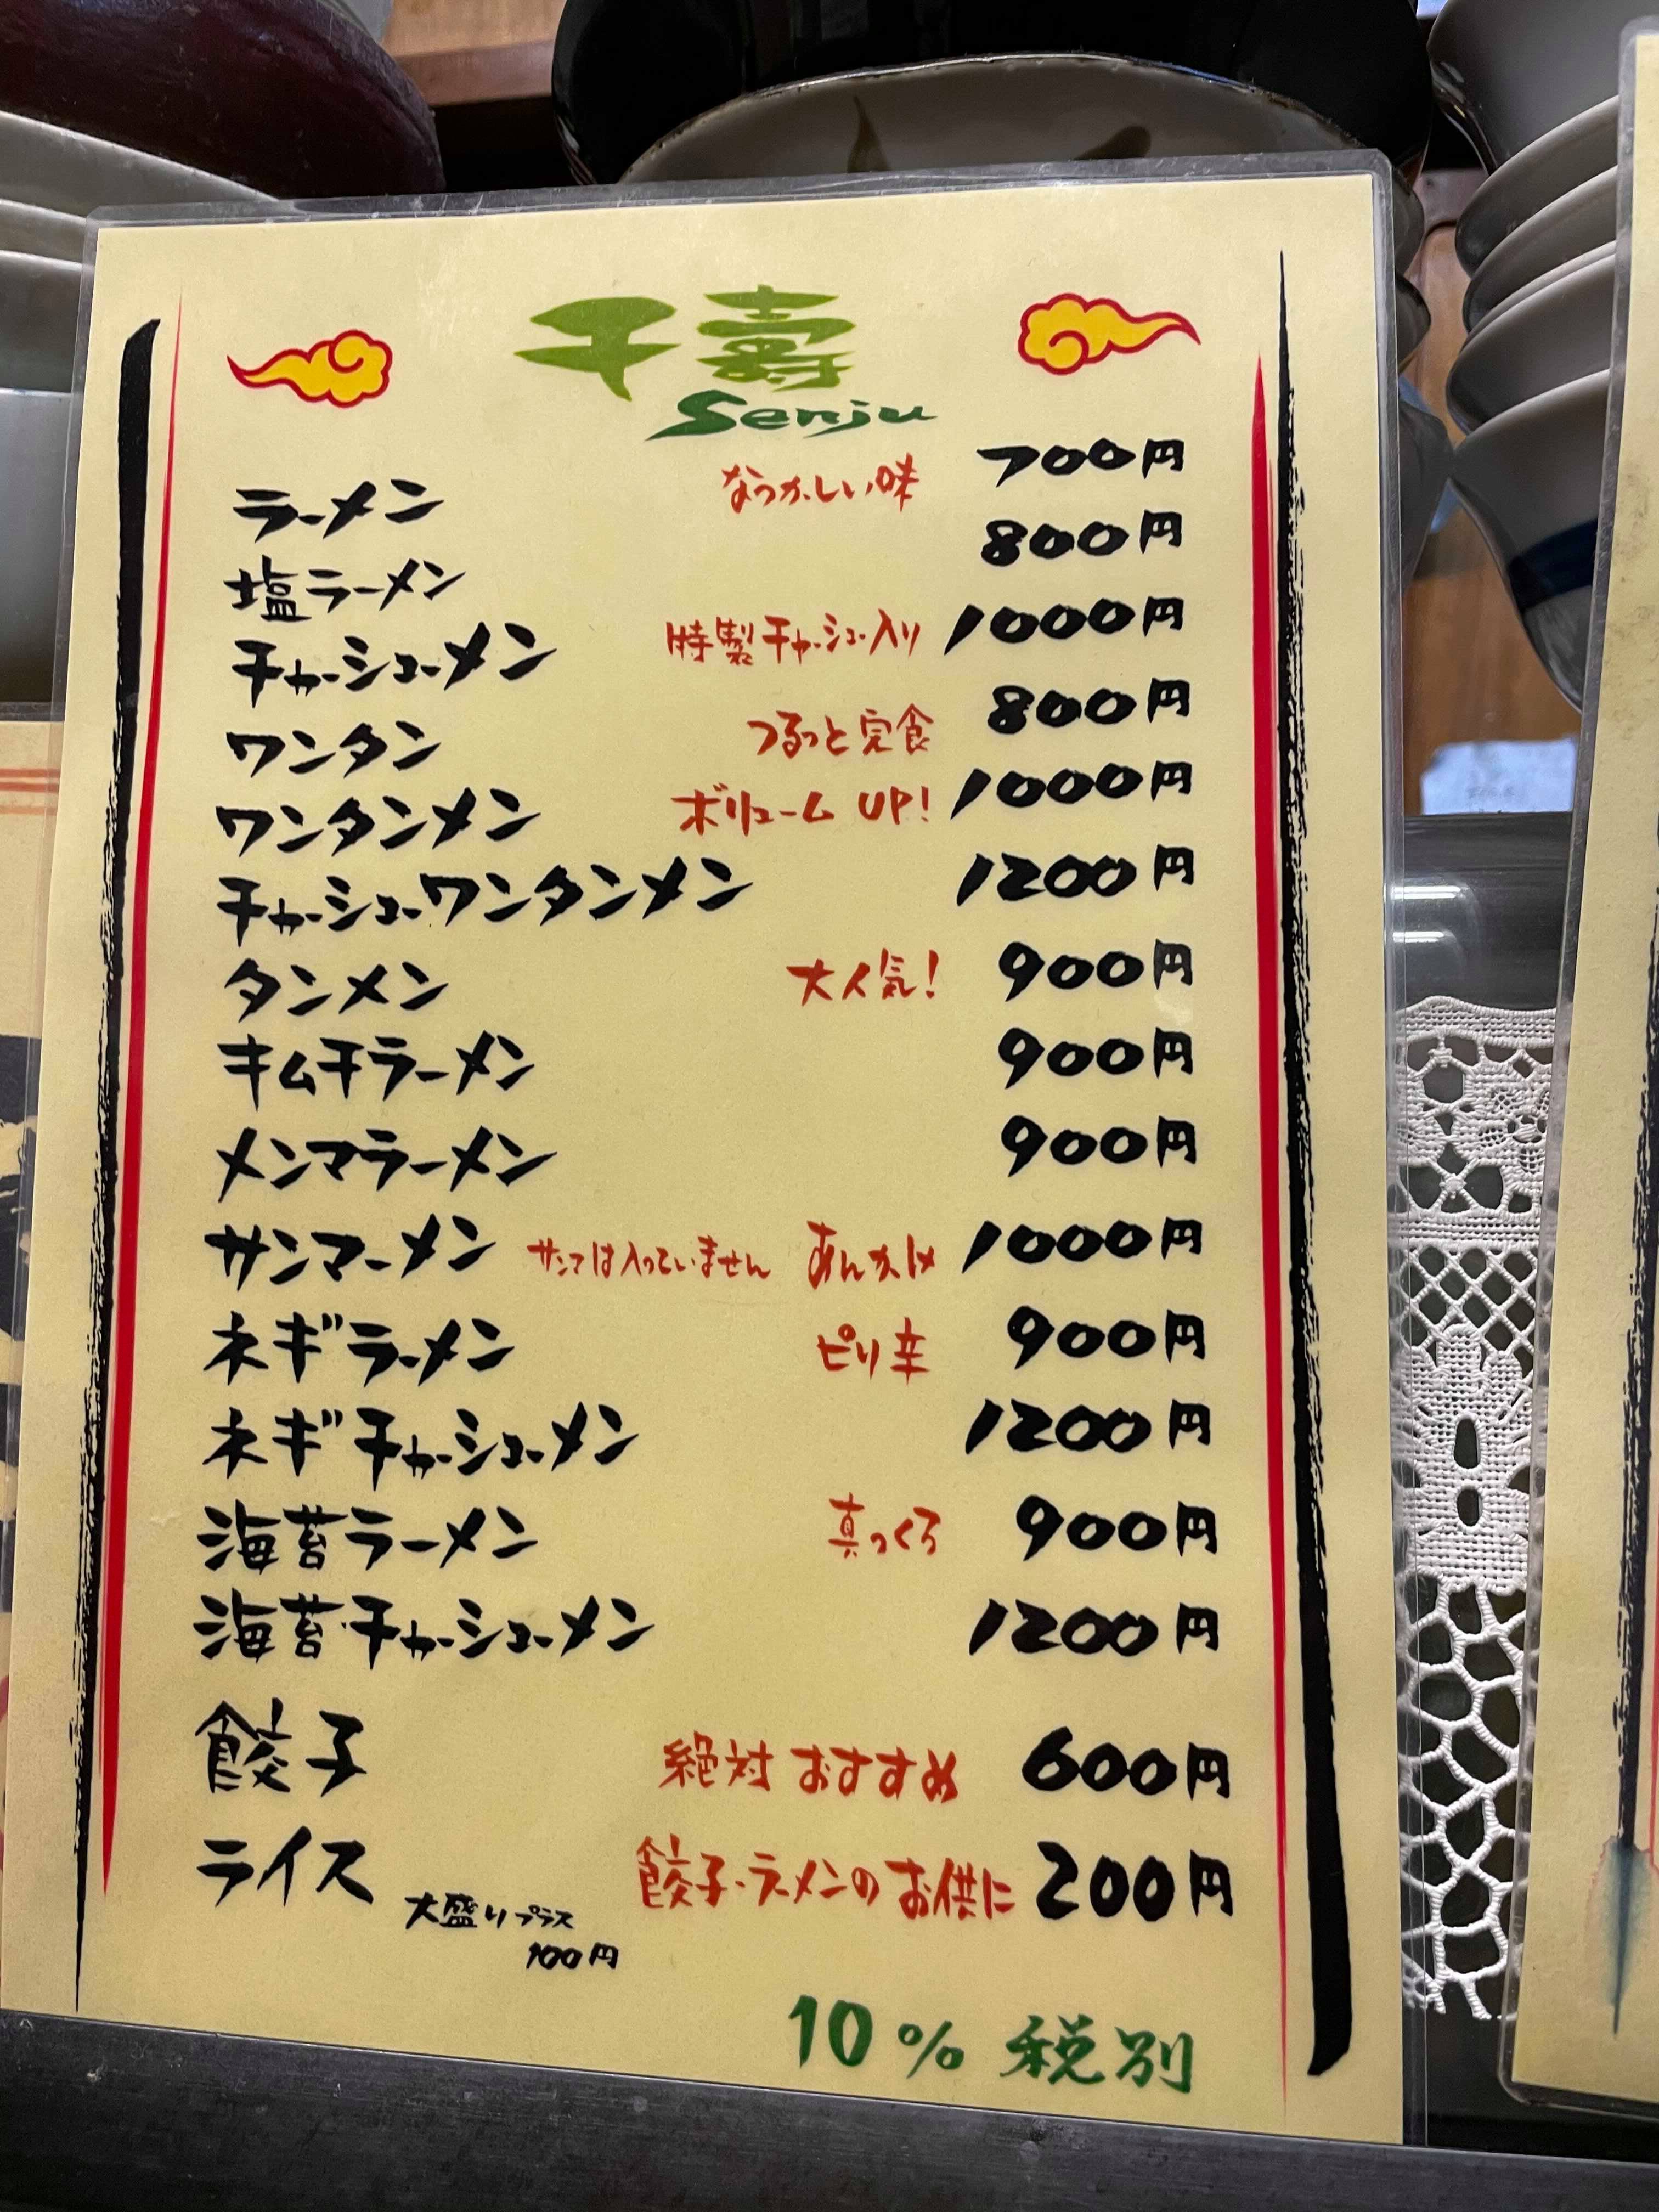 千寿
Senju
ラーメン なつかしい味 700円
塩ラーメン 800円
チャーシューメン 特製チャーシュー入り 1000円
ワンタン つるっと完食 800円
ワンタンメン ボリューム UP! 1000円
チャーシューワンタンメン 1200円
タンメン 大人気! 900円
キムチラーメン 900円
メンマラーメン 900円
サンマーメン サンマは入っていません あんかけ 1000円
ネギラーメン ピリ辛 900円
ネギチャーシューメン 1200円
海苔ラーメン 真っくろ 900円
海苔チャーシューメン 1200円
餃子 絶対おすすめ 600円
ライス 大盛りプラス 餃子・ラーメンのお供に 200円
100円
10% 税別